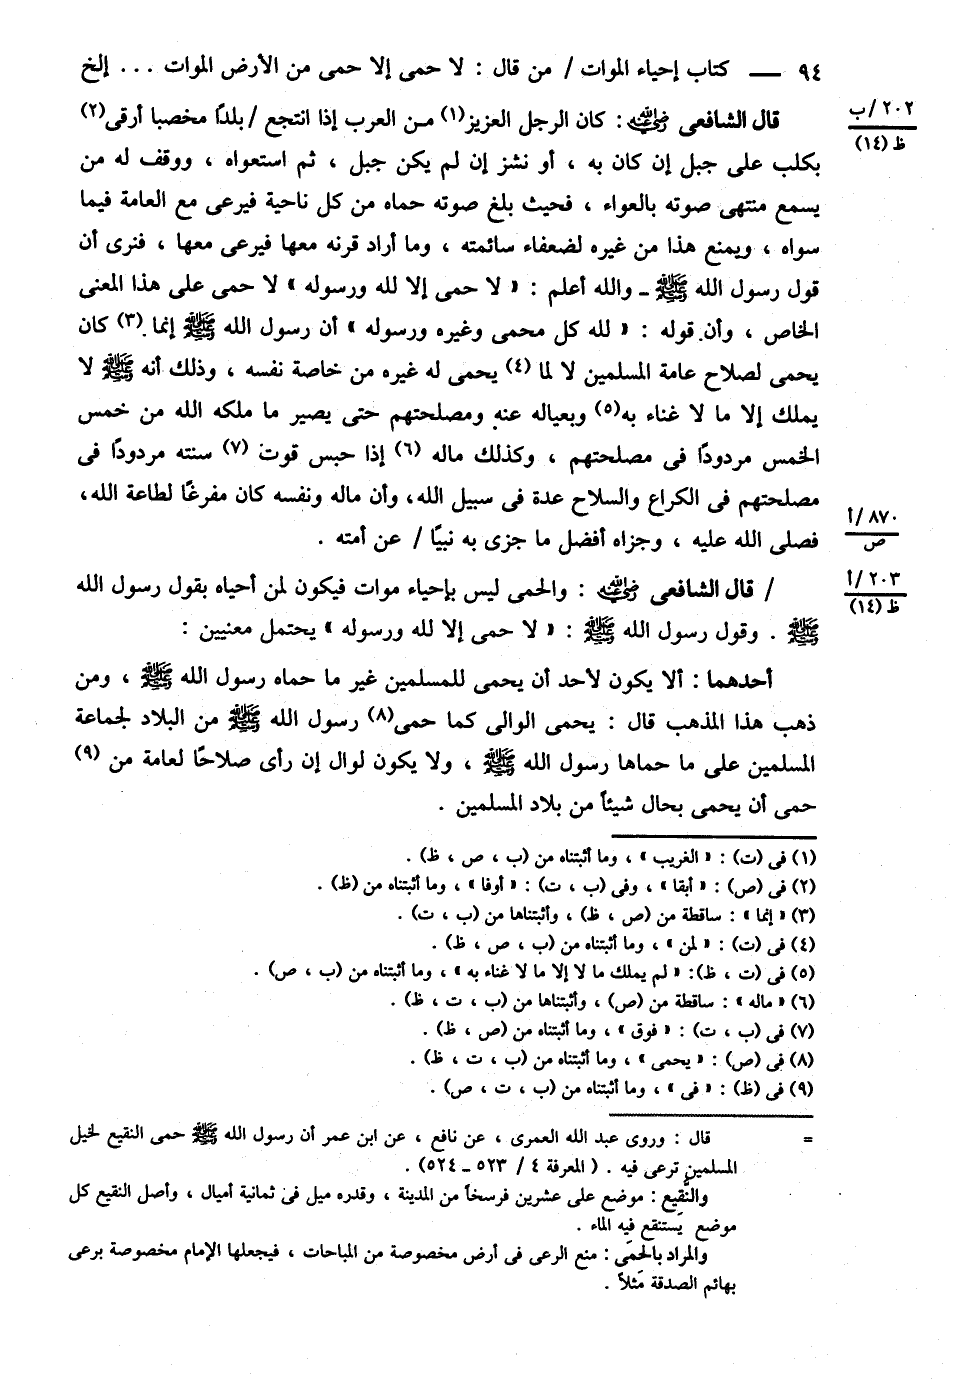 ٩٤ ـــ كتاب إحياء الموات / من قال : لا حمى إلا حمى من الأرض الموات ... إلخ
قال الشافعى رضي الله عنه : كان الرجل العزيز(١) من العرب إذا انتجع / بلدًا مخصبا أرقى(٢)
٢٠٢/ب
ظ (١٤)
بكلب على جبل إن كان به ، أو نشز إن لم يكن جبل ، ثم استعواه ، ووقف له من
يسمع منتهى صوته بالعواء ، فحيث بلغ صوته حماه من كل ناحية فيرعى مع العامة فيما
سواه ، ويمنع هذا من غيره لضعفاء سائمته ، وما أراد قرنه معها فيرعى معها ، فنرى أن
قول رسول الله ﷺ ـ والله أعلم : « لا حمى إلا لله ورسوله » لا حمى على هذا المعنى
الخاص ، وأن قوله : « لله كل محمى وغيره ورسوله » أن رسول الله ﷺ إنما (٣) كان
يحمى لصلاح عامة المسلمين لا لما (٤) يحمى له غيره من خاصة نفسه ، وذلك أنه ﷺ لا
يملك إلا ما لا غناء به(٥) وبعياله عنه ومصلحتهم حتى يصير ما ملكه الله من خمس
الخمس مردودًا فى مصلحتهم ، وكذلك ماله (٦) إذا حبس قوت (٧) سنته مردودًا فى
مصلحتهم فى الكراع والسلاح عدة فى سبيل الله، وأن ماله ونفسه كان مفرغًا لطاعة الله،
فصلى الله عليه ، وجزاه أفضل ما جزى به نبيًا / عن أمته .
٨٧٠/أ
ص
/ قال الشافعى رضي الله عنه : والحمى ليس بإحياء موات فيكون لمن أحياه بقول رسول الله
٢٠٣/أ
ظ (١٤)
ﷺ . وقول رسول الله ﷺ : « لا حمى إلا لله ورسوله » يحتمل معنيين :
أحدهما : ألا يكون لأحد أن يحمى للمسلمين غير ما حماه رسول الله ﷺ ، ومن
ذهب هذا المذهب قال : يحمى الوالى كما حمى(٨) رسول الله ﷺ من البلاد لجماعة
المسلمين على ما حماها رسول الله ﷺ ، ولا يكون لوال إن رأى صلاحًا لعامة من (٩)
حمى أن يحمى بحال شيئاً من بلاد المسلمين .
(١) فى (ت) : « الغريب » ، وما أثبتناه من (ب ، ص ، ظ) .
(٢) فى (ص) : « أبقا » ، وفى (ب ، ت) : « أوفا » ، وما أثبتناه من (ظ) .
(٣) « إنما » : ساقطة من (ص ، ظ) ، وأثبتناها من (ب ، ت) .
(٤) فى (ت) : « لمن » ، وما أثبتناه من (ب ، ص ، ظ) .
(٥) فى (ت ، ظ): « لم يملك ما لا إلا ما لا غناء به » ، وما أثبتناه من (ب ، ص) .
(٦) « ماله » : ساقطة من (ص) ، وأثبتناها من (ب ، ت ، ظ) .
(٧) فى (ب ، ت) : « فوق » ، وما أثبتناه من (ص ، ظ) .
(٨) فى (ص) : « يحمى » ، وما أثبتناه من (ب ، ت ، ظ) .
(٩) فى (ظ) : « فى » ، وما أثبتناه من (ب ، ت ، ص) .
= قال : وروى عبد الله العمرى ، عن نافع ، عن ابن عمر أن رسول الله ﷺ حمى النقيع لخيل
المسلمين ترعى فيه . ( المعرفة ٤ / ٥٢٣ ـ ٥٢٤) .
والنَّقِيع : موضع على عشرين فرسخاً من المدينة ، وقدره ميل فى ثمانية أميال ، وأصل النقيع كل
موضع يَستنقع فيه الماء .
والمراد بالحِمَى : منع الرعى فى أرض مخصوصة من المباحات ، فيجعلها الإمام مخصوصة برعى
بهائم الصدقة مَثلاً .